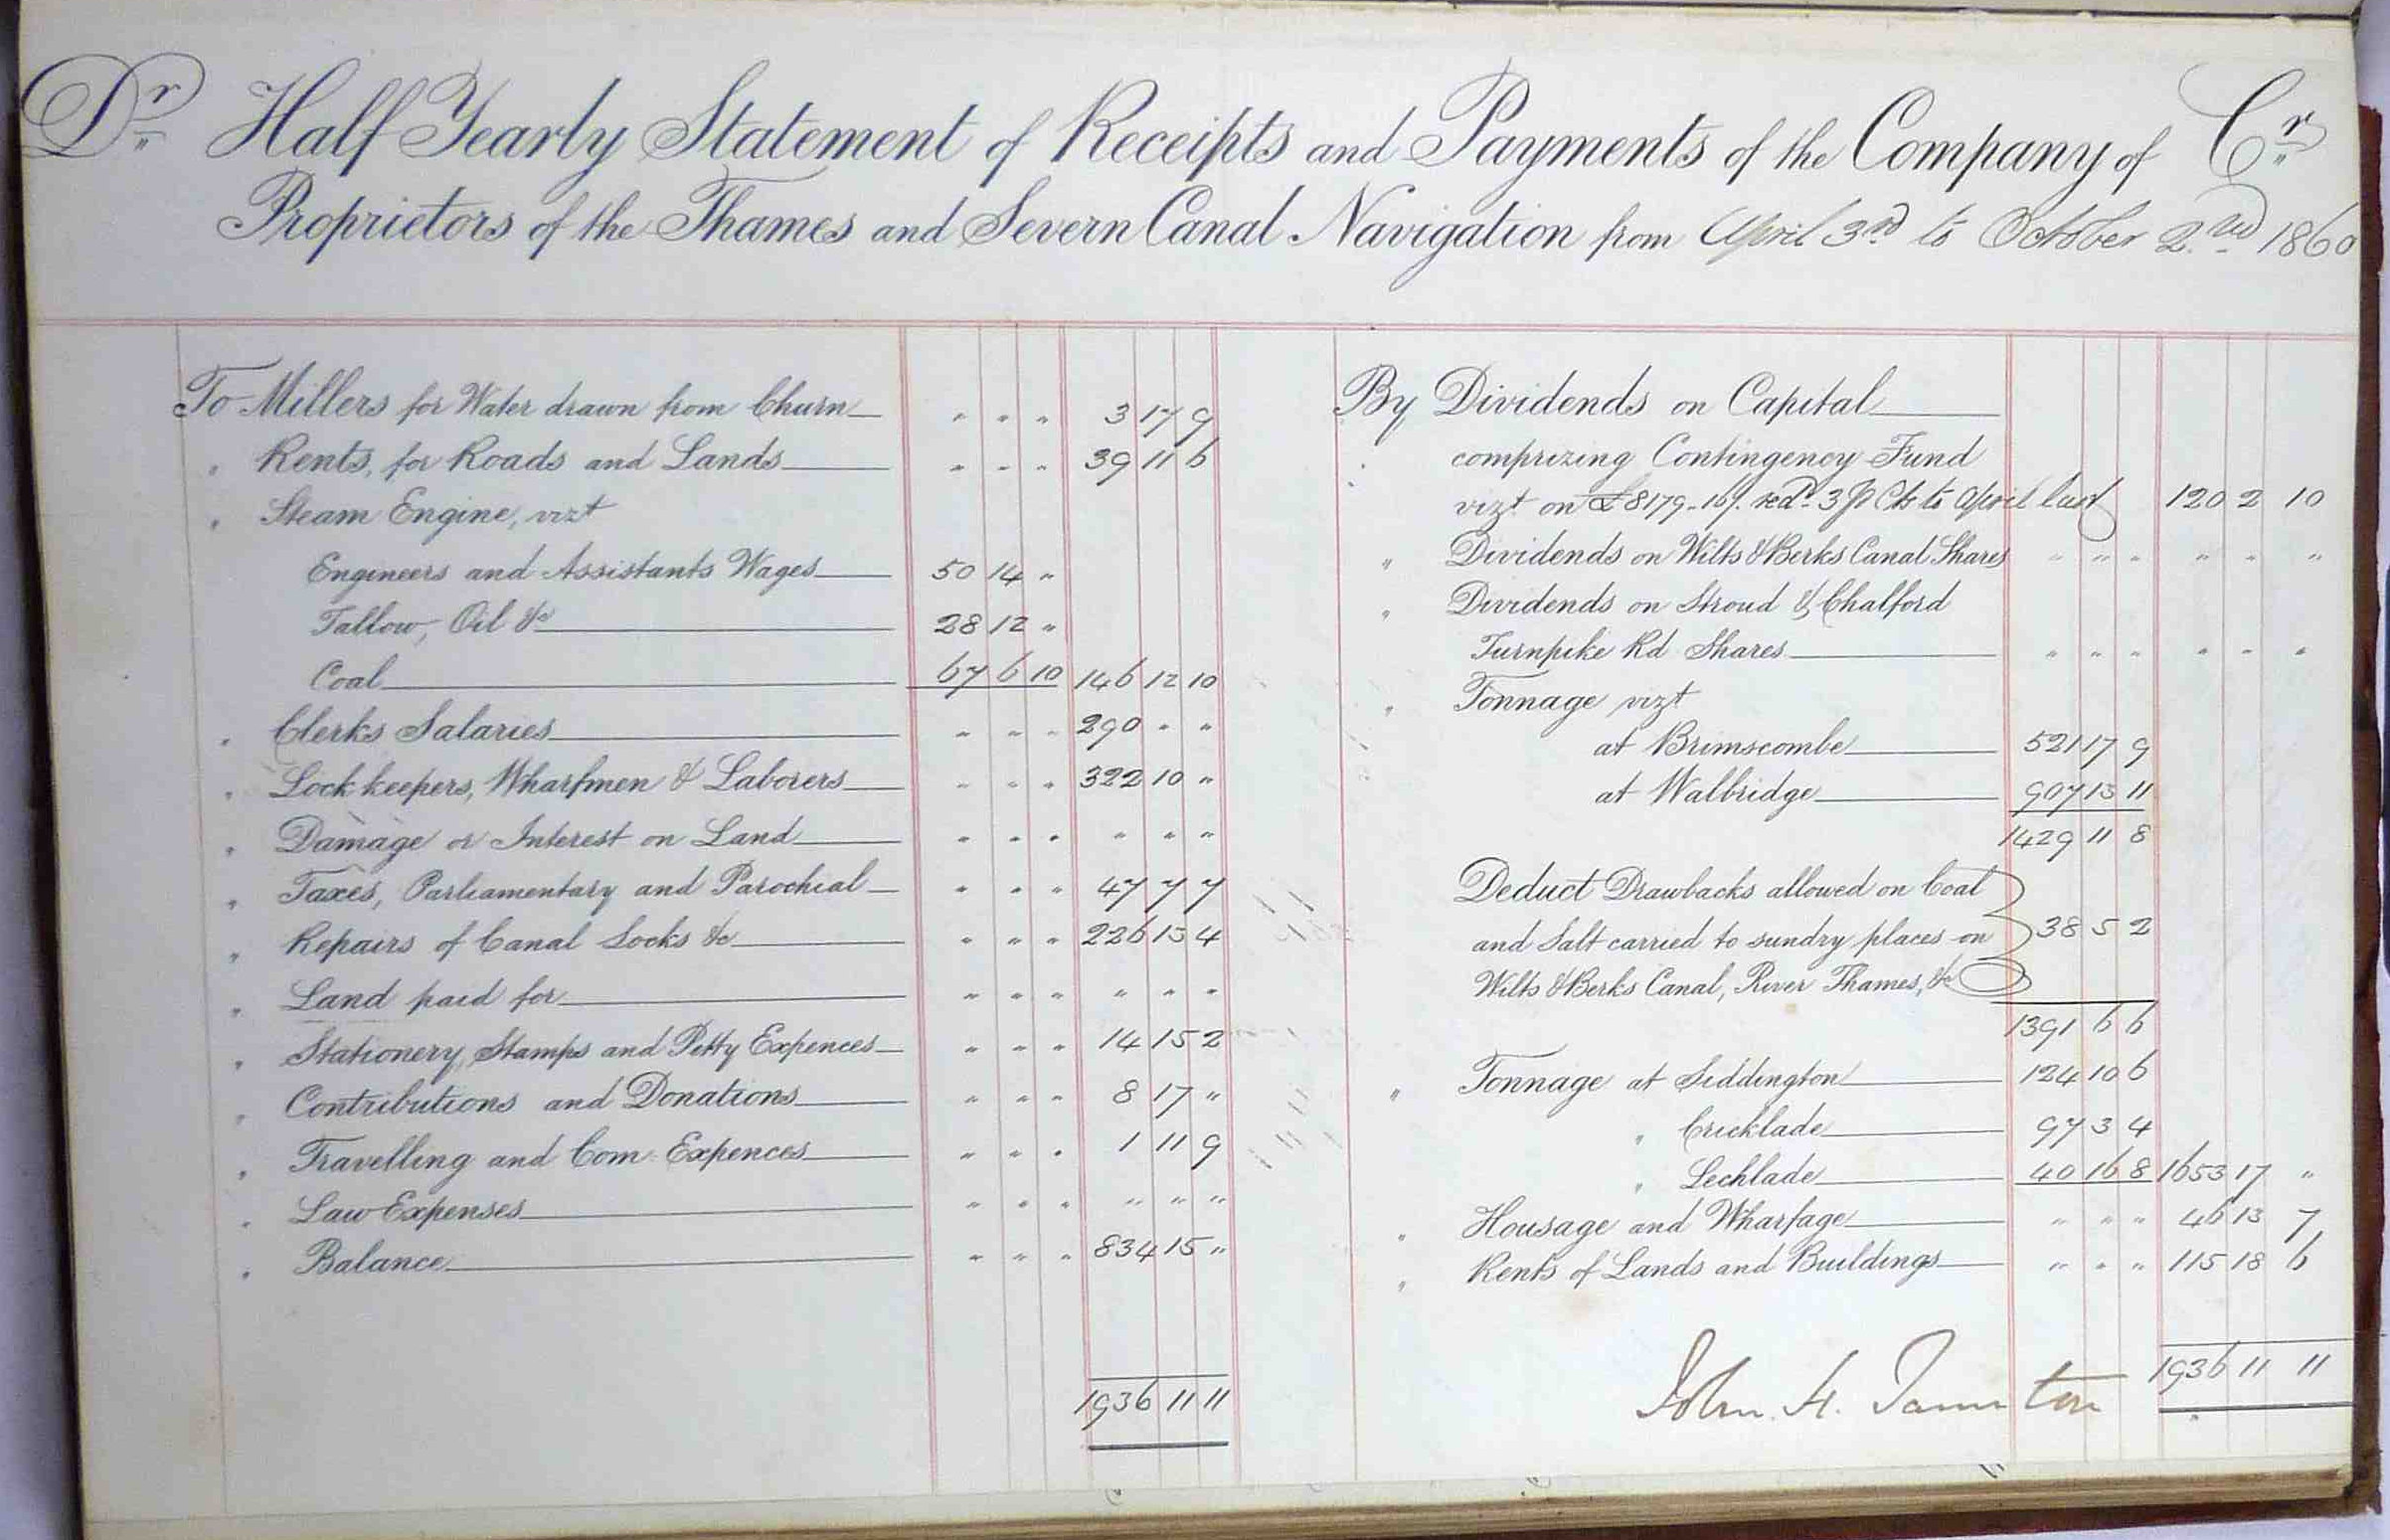 Dr Half Yearly Statement of Receipts and Payments of the Company of Cr
Proprietors of the Thames and Severn Canal Navigation from April 3rd to October 2nd 1860
To Millers for Water drawn from Churn " " " 3 17 9
" Rents, for Roads and Lands " " " 39 11 6
" Steam Engine, vizt
Engineers and Assistants Wages 50 14 "
Tallow, Oil &c 28 12 "
Coal 67 6 10 146 12 10
" Clerks Salaries " " " 290 " "
" Lock keepers, Wharfmen & Laborers " " " 322 10 "
" Damage or Interest on Land " " " " " "
" Taxes, Parliamentary and Parochial " " " 47 7 7
" Repairs of Canal Locks &c " " " 226 13 4
" Land paid for " " " " " "
" Stationery, Stamps and Petty Expences " " " 14 15 2
" Contributions and Donations " " " 8 17 "
" Travelling and Com. Expences " " " 1 11 9
" Law Expenses " " " " " "
" Balance " " " 834 15 "
1936 11 11
By Dividends on Capital
" comprizing Contingency Fund
vizt on £8179-16/. red. 3 P Cts to April last 120 2 10
" Dividends on Wilts & Berks Canal Shares " " " " " "
" Dividends on Stroud & Chalford
Turnpike Rd Shares " " " " " "
" Tonnage vizt
at Brimscombe 521 17 9
at Walbridge 907 13 11
1429 11 8
Deduct Drawbacks allowed on Coal
and Salt carried to sundry places on 38 5 2
Wilts & Berks Canal, River Thames, &c
1391 6 6
" Tonnage at Siddington 124 10 6
" Cricklade 97 3 4
" Lechlade 40 16 8 1653 17 "
" Housage and Wharfage " " " 46 13 7
" Rents of Lands and Buildings " " " 115 18 6
1936 11 11
John H. Taunton